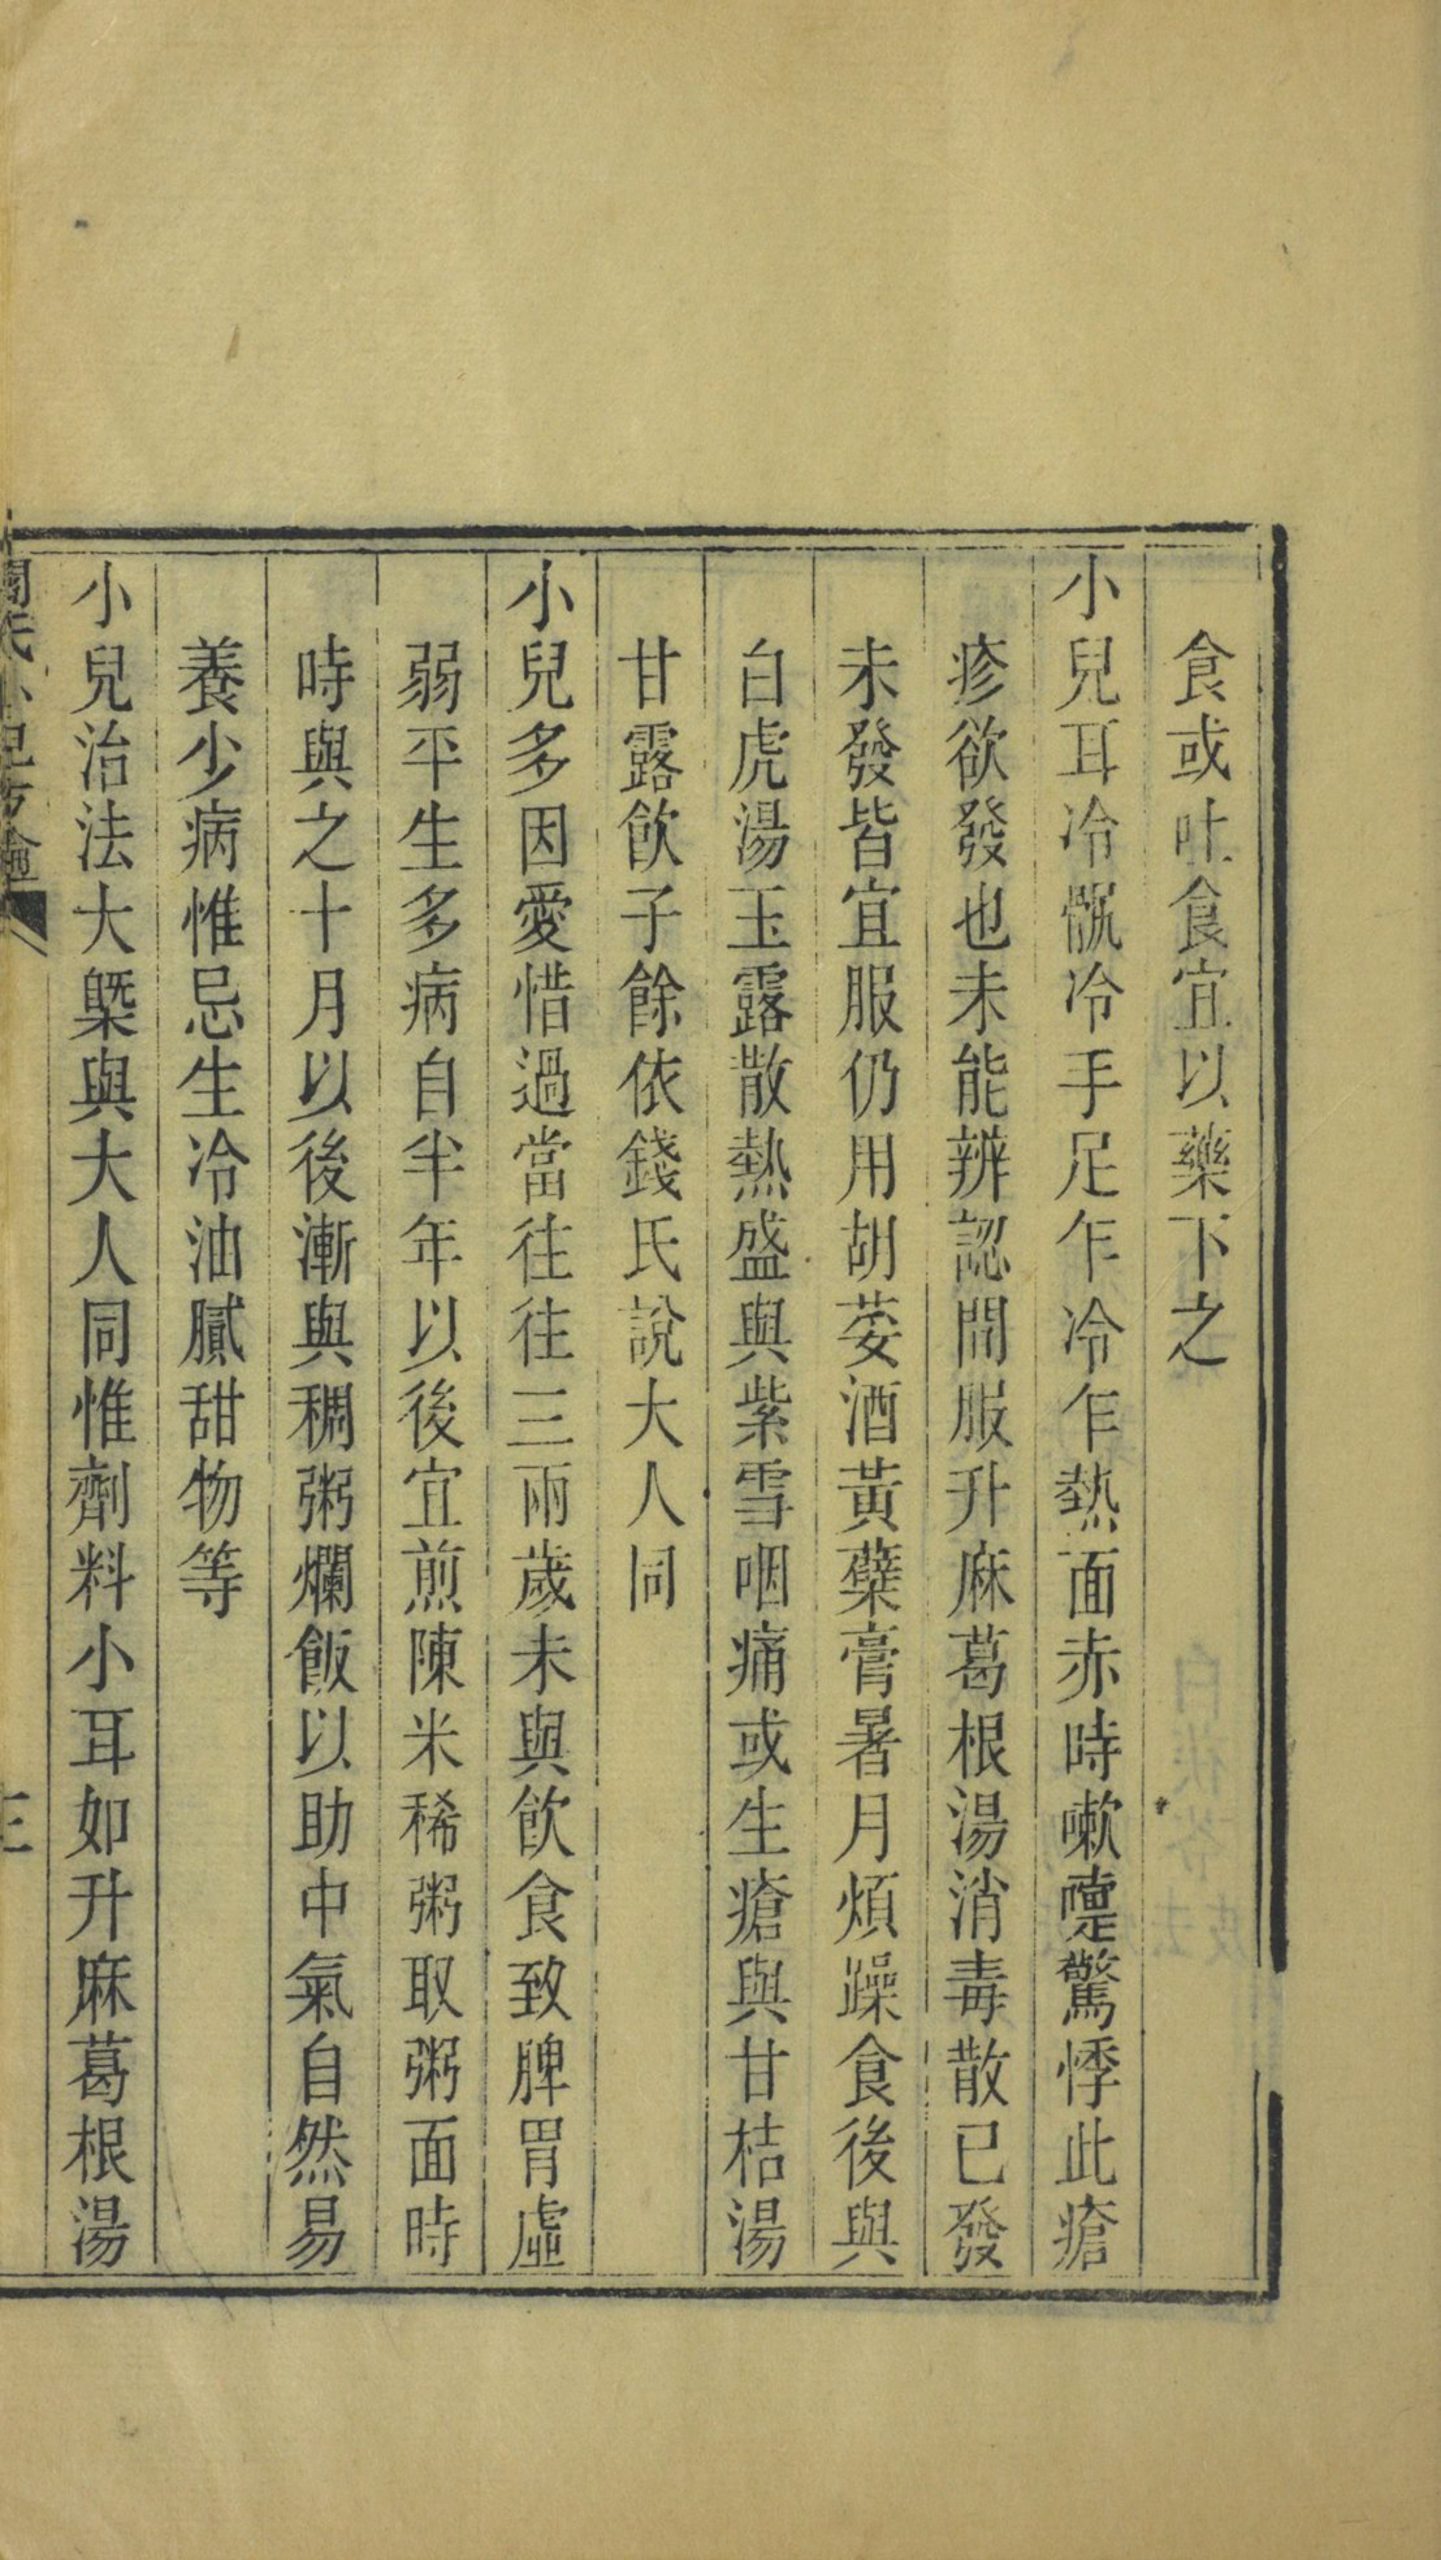 食或吐食宜以藥下之
小兒耳冷骫冷手足乍冷乍熱面赤時嗽嚏驚悸此瘡
疹欲發也未能辨認間服升麻葛根湯消毒散已發
未發皆宜服仍用胡荽酒黃蘗膏暑月煩躁食後與
白虎湯玉露散熱盛與紫雪咽痛或生瘡與甘桔湯
甘露飲子餘依錢氏說大人同
小兒多因愛惜過當往往三兩歲未與飲食致脾胃虛
弱平生多病自半年以後宜煎陳米稀粥取粥面時
時與之十月以後漸與稠粥爛飯以助中氣自然易
養少病惟忌生冷油膩甜物等
小兒治法大槩與大人同惟劑料小耳如升麻葛根湯
閻氏小兒方論
三